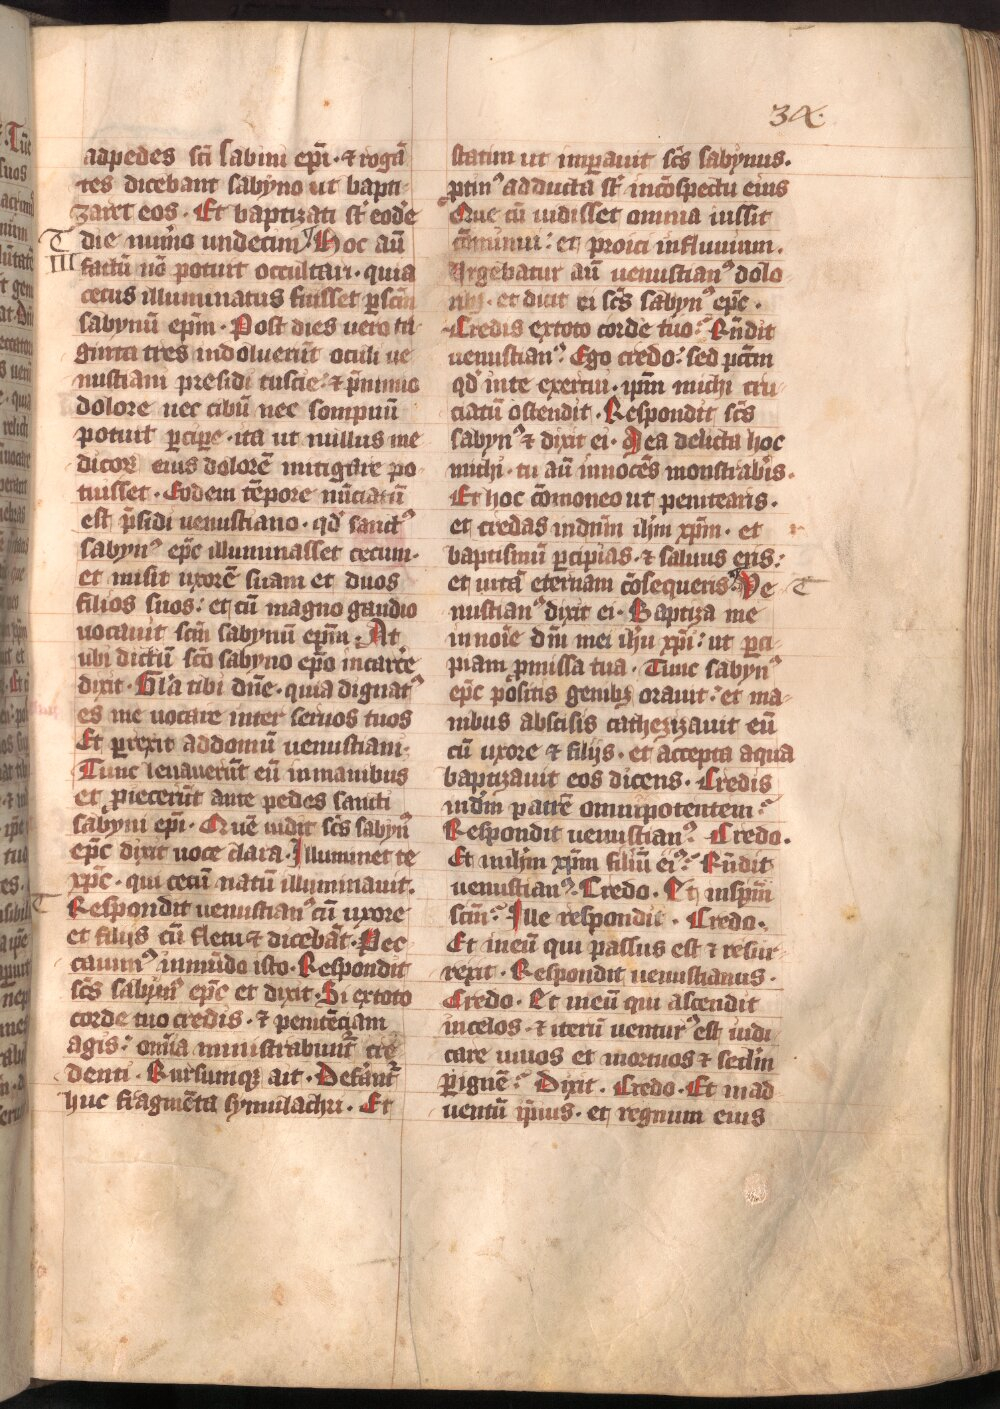 34.
adpedes sc̄i sabini ep̄i · ⁊ rogā
tes dicebant sabyno ut bapti
zaret eos · Et baptizati st̄ eodē
die num̄o undecim · Hoc aū
T III
factū nō potuit occultari · quia
cecus illuminatus fuisset p̄ sc̄m
sabynū ep̄m · Post dies uero tri
ginta tres indoluerūt oculi ue
nustiani presidi tuscie : ⁊ p̄nimio
dolore nec cibū nec sompnū
potuit p̄cip̄e · ita ut nullus me
dicoꝝ eius dolorē mitigare po
tuisset · Eodem tēpore nūciatū
est p̄sidi uenustiano · qd̄ sanctꝰ
sabynꝰ ep̄c illuminasset cecum ·
et misit uxorē suam et duos
filios suos : et cū magno gaudio
uocauit sc̄m sabynū ep̄m · At
ubi dictū sc̄o sabyno ep̄o incarcē
dixit · Gl̄a tibi dn̄e · quia dignatꝰ
es me uocare inter seruos tuos
Et p̄rexit addomū uenustiani ·
Tunc leuauerūt eū inmanibus
et p̄iecerūt ante pedes sancti
sabyni ep̄i · Quē uidit sc̄s sabynꝰ
ep̄c dixit uoce clara · Illuminet te
xp̄c · qui cecū natū illuminauit ·
T
Respondit uenustianꝰ cū uxore
et filijs cū fletu ⁊ dicebāt · Pec
cauimꝰ inmūdo isto · Respondit
sc̄s sabynꝰ ep̄c et dixit · Si extoto
corde tuo credis · ⁊ penitēciam
agis : om̄ia ministrabunt̄ cre
denti · Rursumq ait · Defānt̄
huc fragmēta symulachri · Et
statim ut inp̄auit sc̄s sabynus ·
p̄tinꝰ adducta st̄ incōspectu eius
Que cū uidisset omnia iussit
cōminui : et proici influuium ·
Urgebatur aū uenustianꝰ dolo
· et dicit ei sc̄s sabynꝰ ep̄c ·
Credis extoto corde tuo : Rn̄dit
uenustianꝰ · Ego credo : sed pctm̄
qd̄ inte exercui · ipm̄ michi cru
ciatū ostendit · Respondit sc̄s
sabynꝰ ⁊ dixit ei · Mea delicta hoc
michi · tu aū innocēs monstrabis ·
Et hoc cōmoneo ut penitearis ·
et credas indn̄m ih̄m xp̄m · et
baptismū p̄cipias · ⁊ saluus eris :
et uitā eternam cōsequeris · Ve
T
nustianꝰ dixit ei · Baptiza me
innoīe dn̄i mei ih̄u xp̄i : ut p̄ci
piam p̄missa tua · Tunc sabynꝰ
ep̄c pōsitis genibꝫ orauit : et ma
nibus abscisis cathezizauit eū
cū uxore ⁊ filijs · et accepta aqua
baptizauit eos dicens · Credis
indm̄ patrē omnipotentem :
Respondit uenustianꝰ · Credo ·
Et inih̄m xp̄m filiū eiꝰ : Rn̄dit
uenustianꝰ · Credo · Et insp̄m
sc̄m : Ille respondit · Credo ·
Et ineū qui passus est ⁊ resur
rexit · Respondit uenustianus ·
Credo · Et ineū qui ascendit
incelos · ⁊ iterū uenturꝰ est iudi
care uiuos et mortuos ⁊ sec̄lm
p̄ ignē : Dixit · Credo · Et inad
uentū ip̄ius · et regnum eius